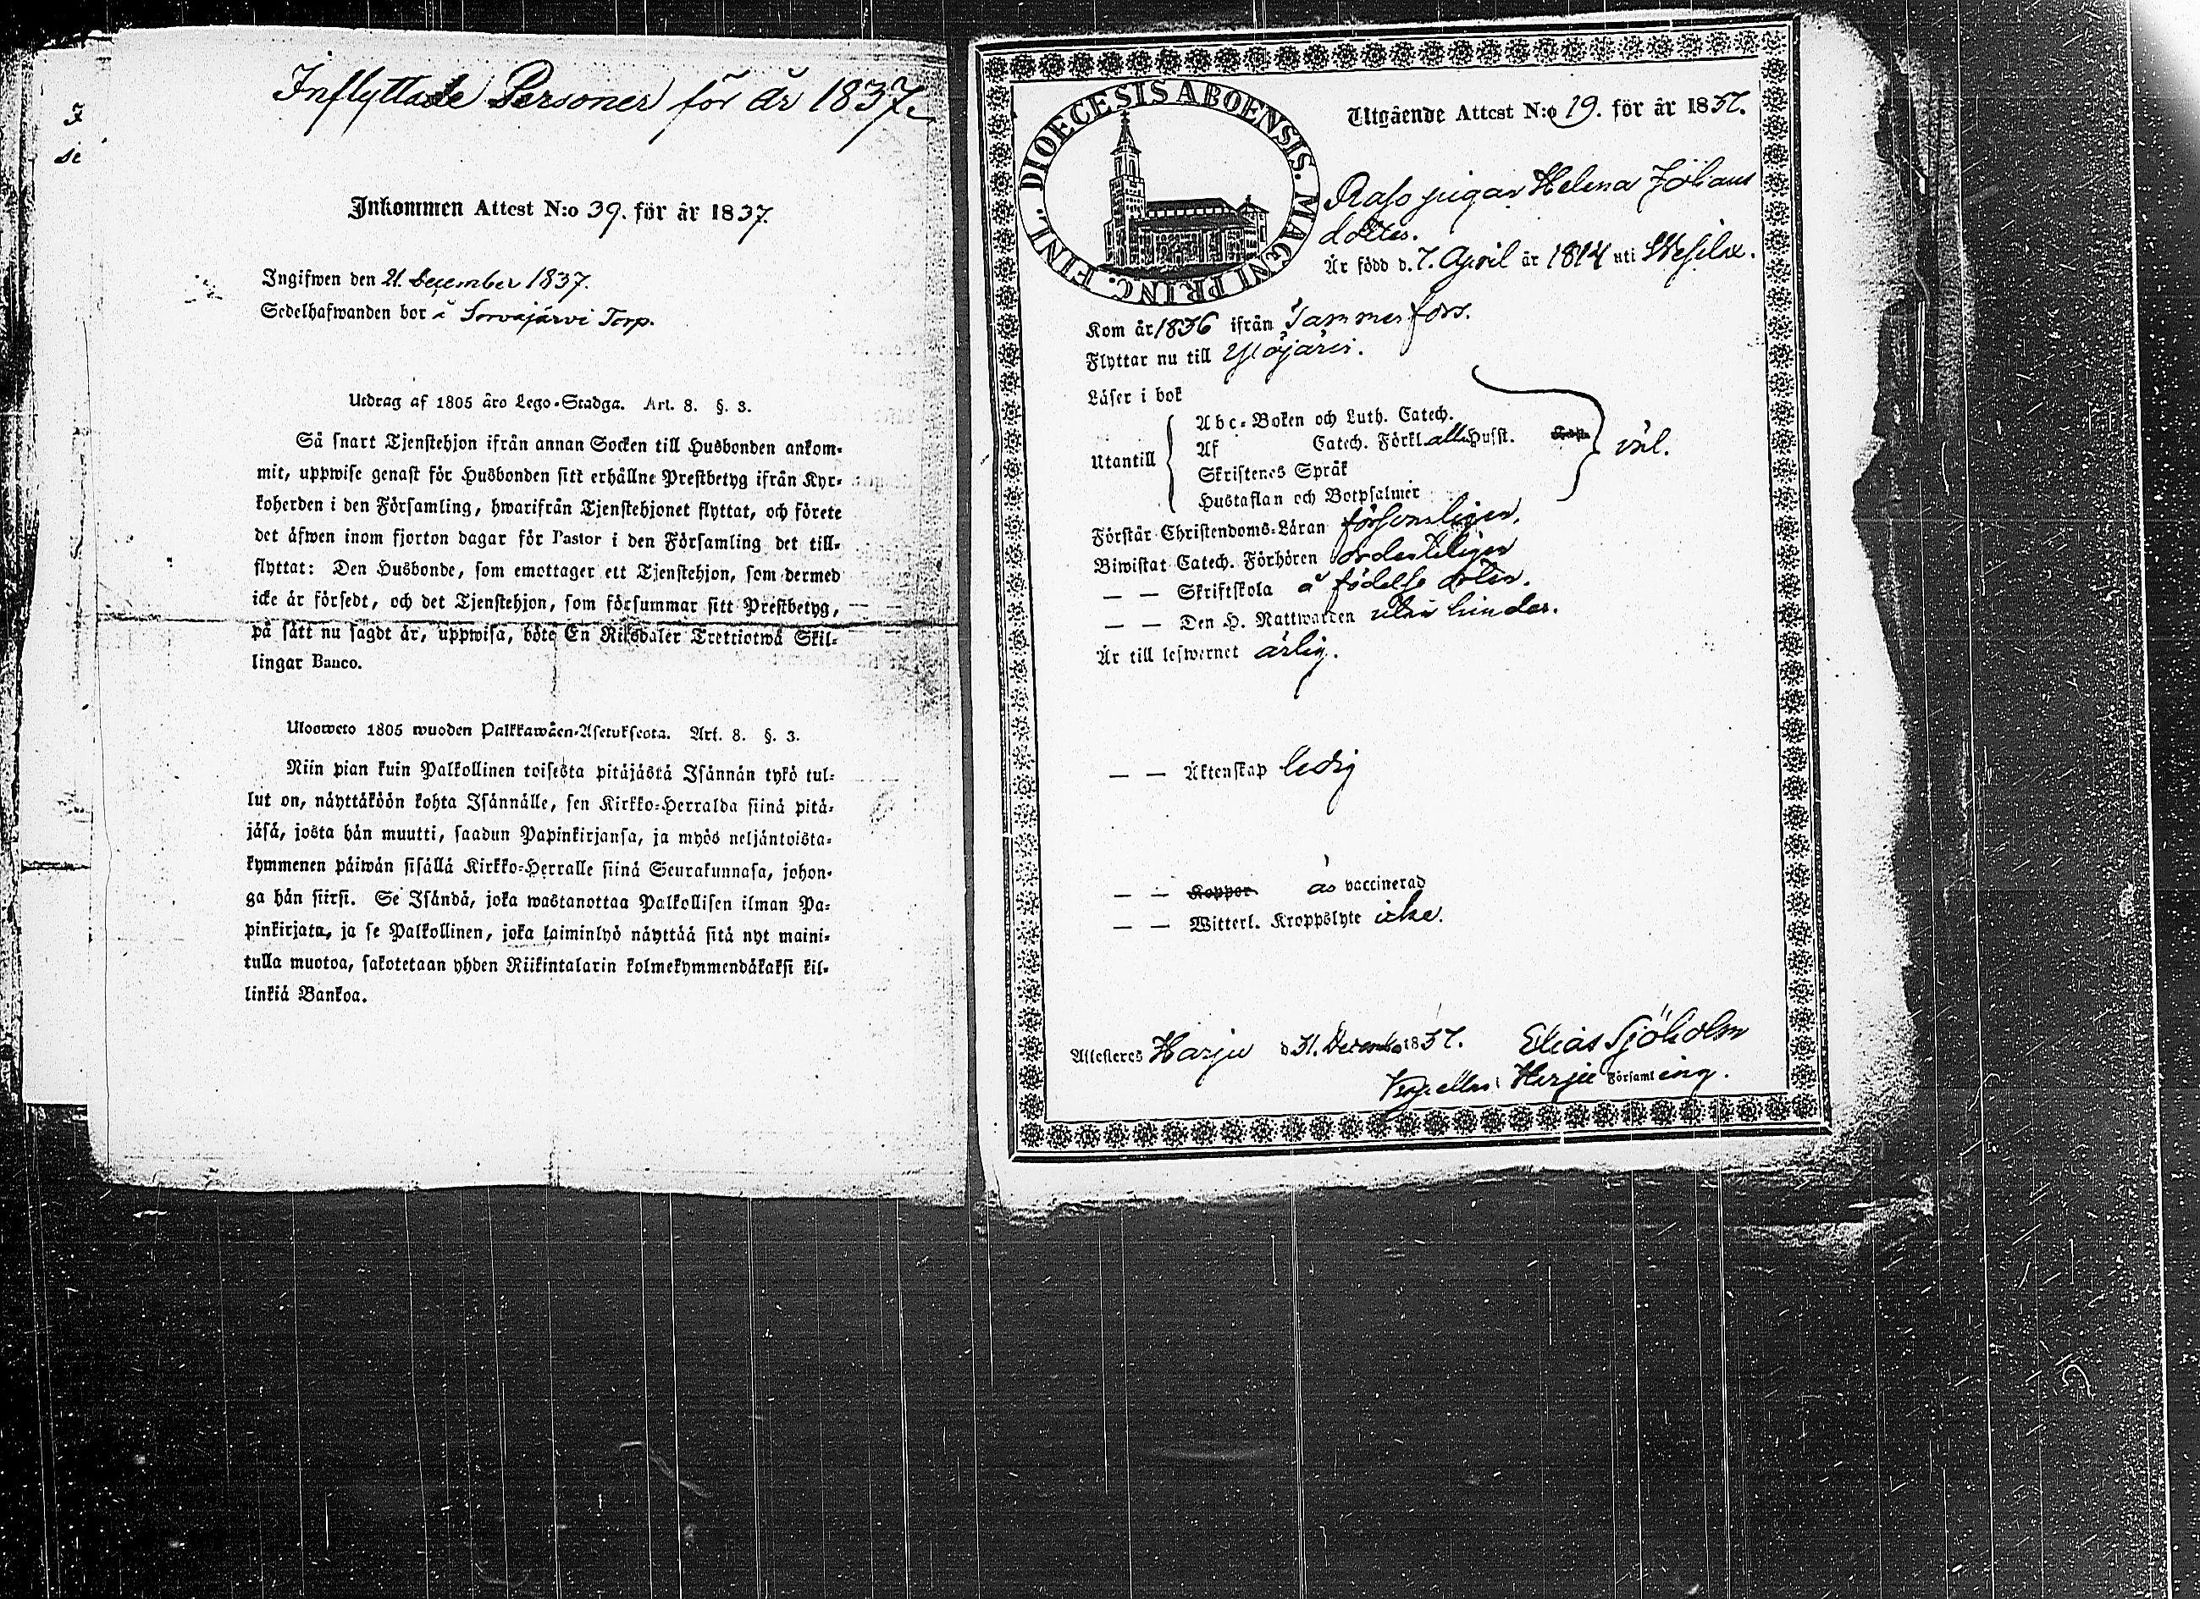 Inflyttade Personer för år 1837.
Inkommen Attest N:o 39. för år 1837.
Ingifwen den 21. December 1837.
Sedelhafwanden bor å Sorvajärvi Torp.
Utdrag af 1805 års Lego-Stadga. Art. 8. §. 3.
Så snart Tjenstehjon ifrån annan Socken till Husbonden ankom-
mit, uppwise genast för Husbonden sitt erhållne Prestbetyg ifrån Kyr-
koherden i den Församling, hwarifrån Tjenstehjonet flyttat, och förete
det äfwen inom fjorton dagar för Pastor i den Församling det till-
flyttat: Den Husbonde, som emottager ett Tjenstehjon, som dermed
icke är försedt, och det Tjenstehjon, som försummar sitt Prestbetyg,
på sätt nu sagdt är, uppwisa, böte En Riksdaler Trettiotwå Skil-
lingar Banco.
Uloosweto 1805 wuoden Palkkawäen-Asetuksesta. Art. 8. §. 3.
Niin pian kuin Palkollinen toisesta pitäjästä Isännän tykö tul-
lut on, näyttäköön kohta Isännälle, sen Kirkko-Herralda siinä pitä-
jäsä, josta hän muutti, saadun Papinkirjansa, ja myös neljäntoista-
kymmenen päiwän sisällä Kirkko-Herralle siinä Seurakunnasa, johon-
ga hän siirsi. Se Isändä, joka wastanottaa Palkollisen ilman Pa-
pinkirjata, ja se Palkollinen, joka laiminlyö näyttää sitä nyt maini-
tulla muotoa, sakotetaan yhden Riikintalarin kolmekymmendäkaksi kil-
linkiä Bankoa.
DIOECESIS ABOENSIS. MAGNI PRINC. FINL.
Utgående Attest N:o 19. för år 1837.
pigan Helena Johans
dotter.
Är född d. 7. April år 1814 uti Wesilax.
Kom år 1836 ifrån Tammerfors.
Flyttar nu till Ylöjärvi.
Läser i bok
Utantill
Abc-Boken och Luth. Catech.
Af Catech. Förkl. alla Husst.
Skriftenes Språk
Hustaflan och Botpsalmer
väl.
Förstår Christendoms-Läran försvarligen.
Biwistat Catech. Förhören ordentligen
— — Skriftskola å födelse orten.
— — Den H. Nattwarden utan hinder.
Är till lefwernet ärlig.
— — Äktenskap ledig
— — Koppor är vaccinerad
— — Witterl. Kroppslyte icke.
Attesteres Harju d 31. December 1837. Elias Sjöholm
Capellan i Harju Församling.